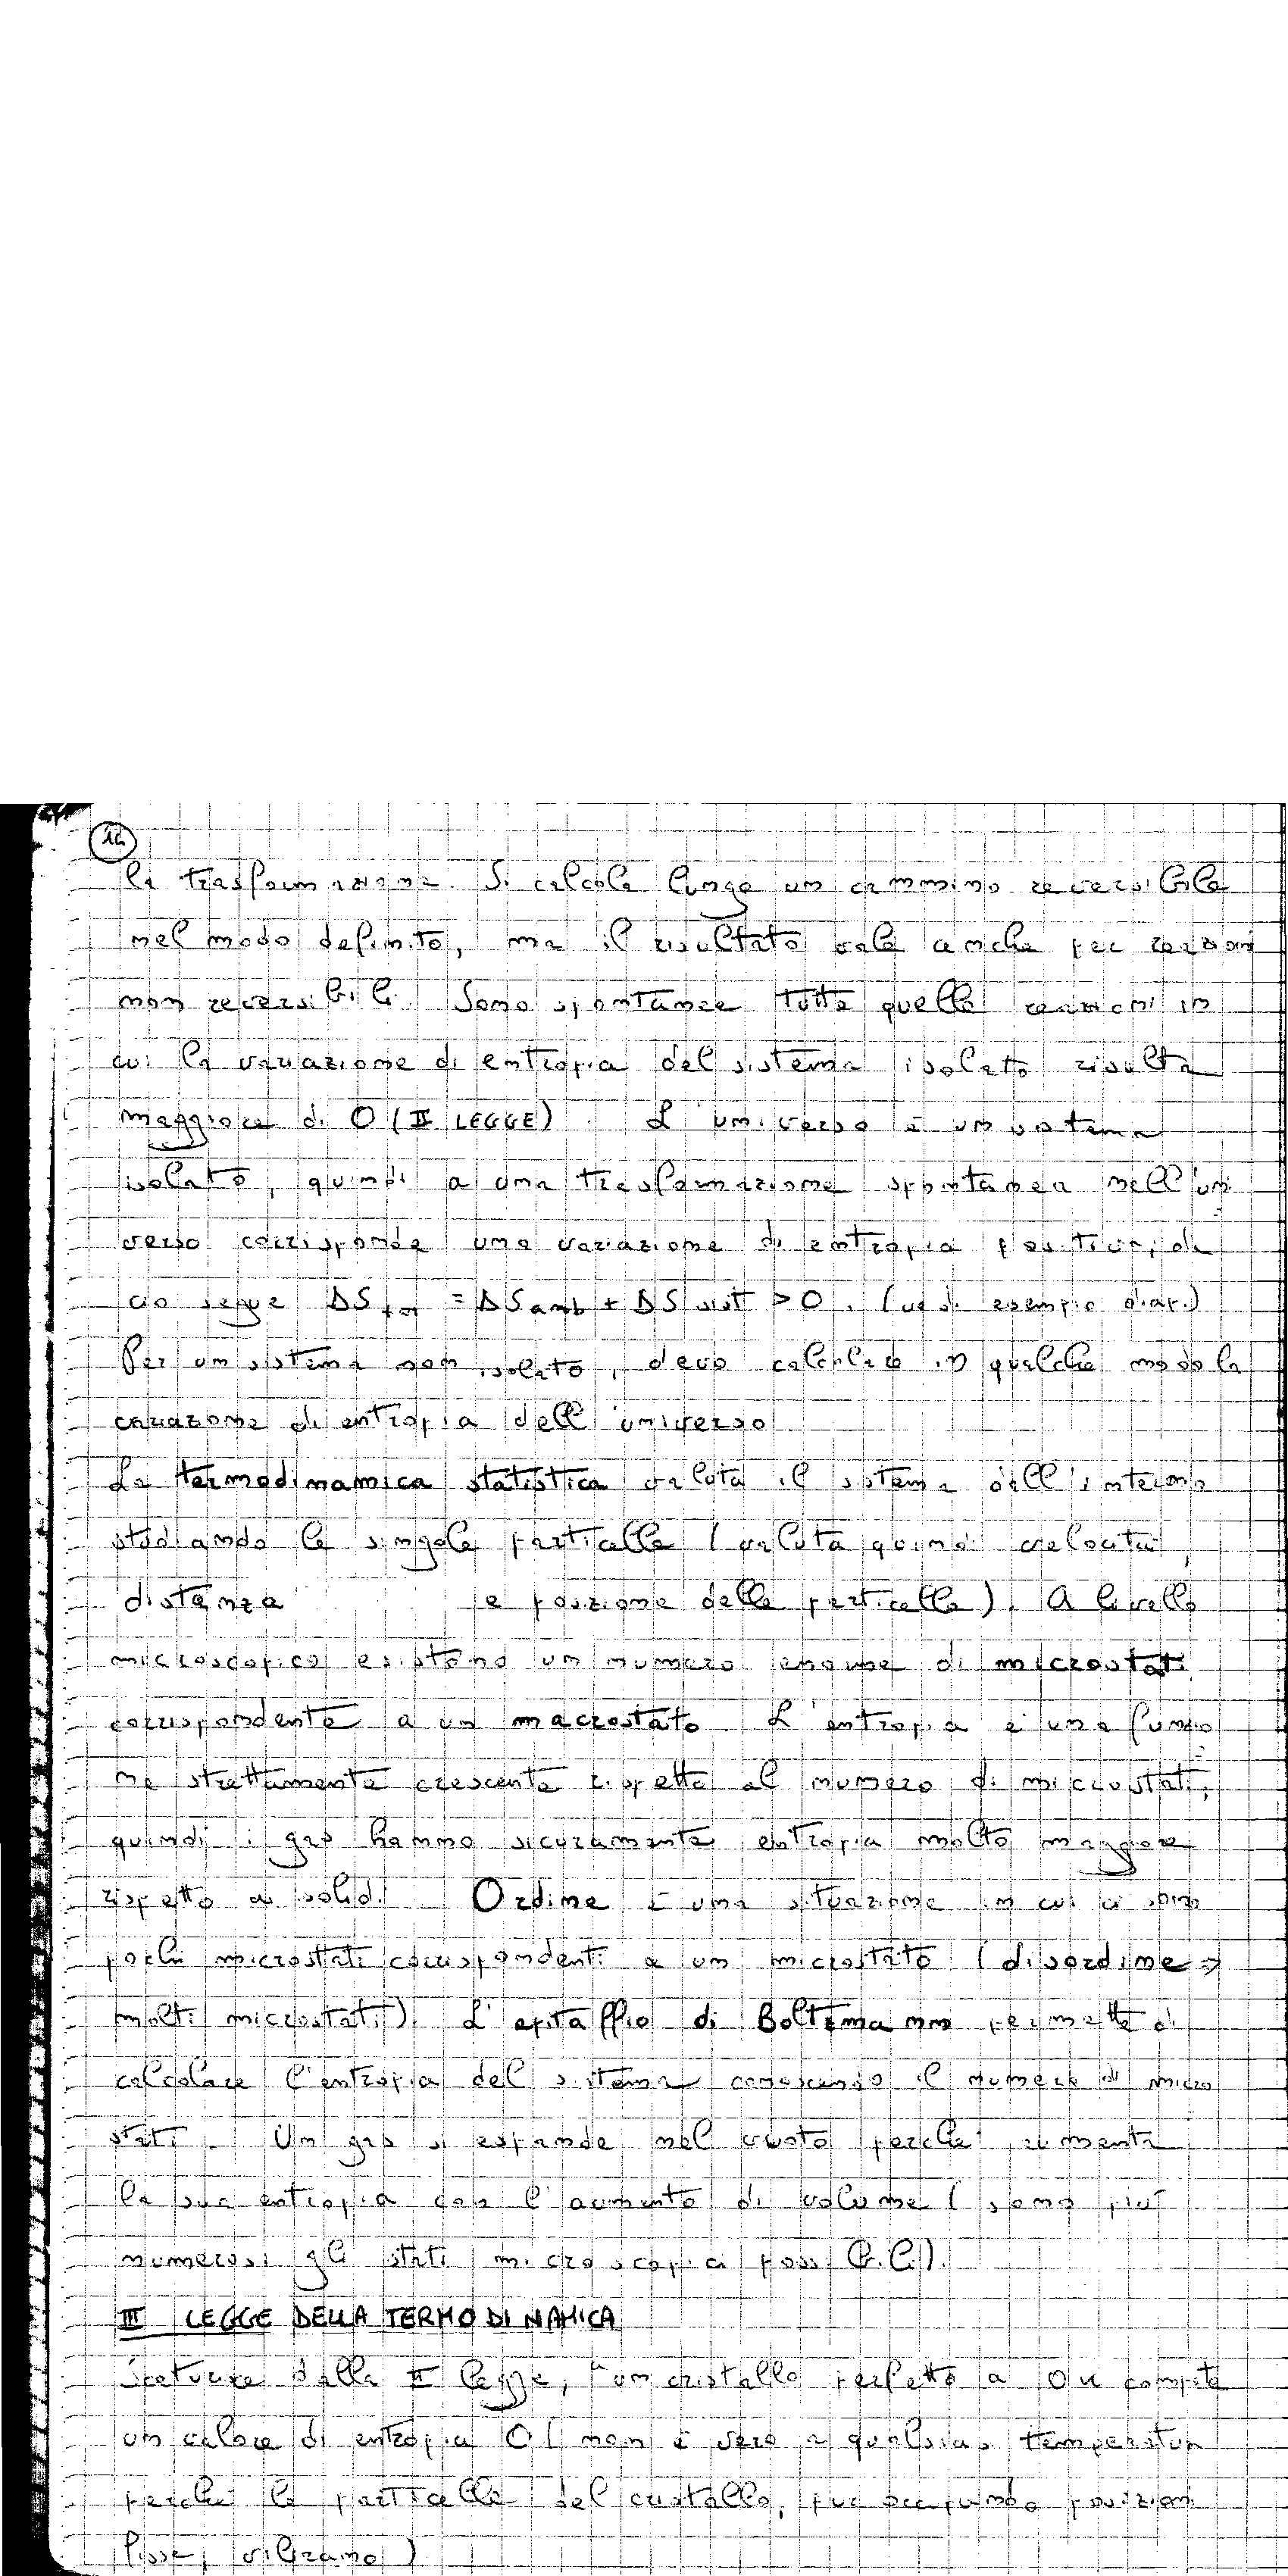 14
la trasformazione. Si calcola lungo un cammino reversibile
nel modo definito, ma il risultato vale anche per reazioni
non reversibili. Sono spontanee tutte quelle reazioni in
cui la variazione di entropia del sistema isolato risulta
maggiore di 0 (II LEGGE). L'universo è un sistema
isolato, quindi a una trasformazione spontanea nell'uni
verso corrisponde una variazione di entropia positiva, da
ciò segue ΔStot = ΔSamb + ΔSsist > 0. (vedi esempio diap.)
Per un sistema non isolato, devo calcolare in qualche modo la
variazione di entropia dell'universo
La termodinamica statistica valuta il sistema dall'interno
studiando le singole particelle (valuta quindi velocità,
distanza e posizione delle particelle). A livello
microscopico esistono un numero enorme di microstati
corrispondente a un macrostato. L'entropia è una funzio
ne strettamente crescente rispetto al numero di microstati,
quindi i gas hanno sicuramente entropia molto maggiore
rispetto ai solidi. Ordine è una situazione in cui ci sono
pochi microstati corrispondenti a un microstato (disordine ⇒
molti microstati). L'epitaffio di Boltzmann permette di
calcolare l'entropia del sistema conoscendo il numero di micro
stati. Un gas si espande nel vuoto perché aumenta
la sua entropia con l'aumento di volume (sono più
numerosi gli stati microscopici possibili).
III LEGGE DELLA TERMODINAMICA
Scaturisce dalla II legge, "un cristallo perfetto a 0K compete
un valore di entropia 0 (non è vero a qualsiasi temperatura
perché le particelle del cristallo, pur occupando posizioni
fisse, vibrano)